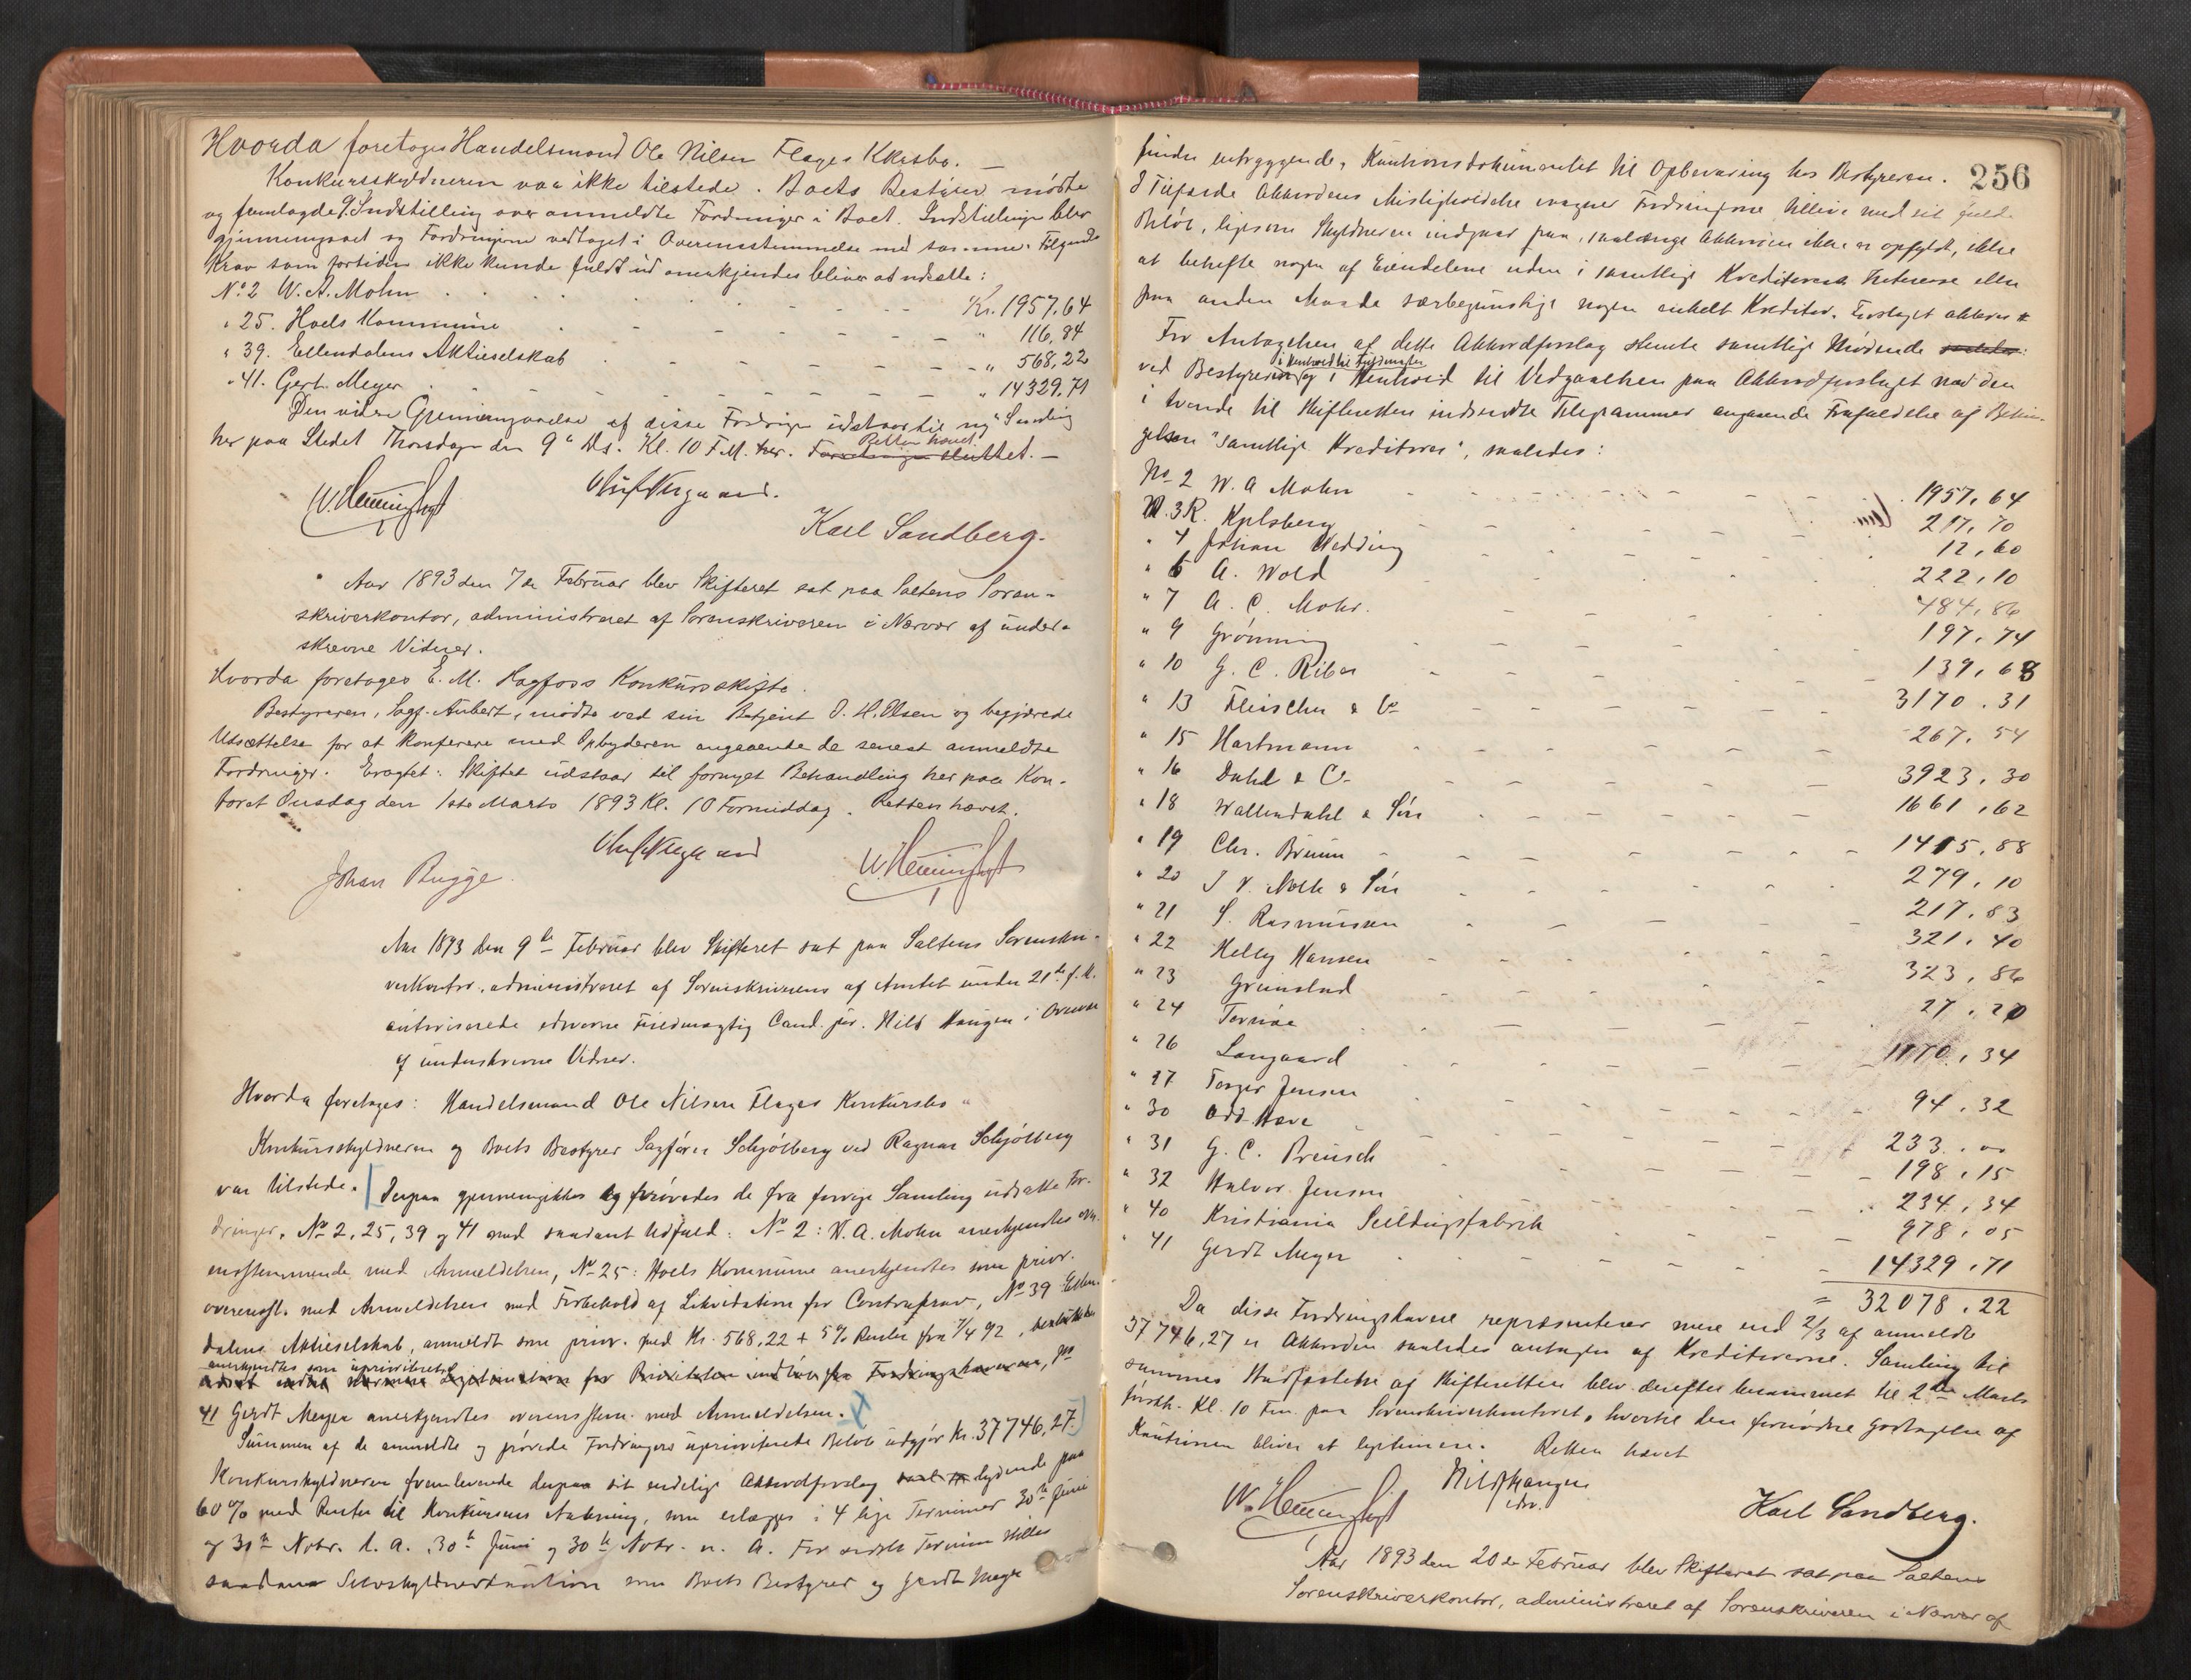 Hvorda foretoges Handelsmand Ole Nilsen Flages Kksbo. —
Konkursskyldneren var ikke tilstede. Boets Bestyrer mødte
og fremlagde Indstilling over anmeldte Fordringer i Boet. Indstillingen blev
gjennemgaaet og Fordringerne vedtaget i Overensstemmelse med samme. Følgende
Krav som fortiden ikke kunde fuldt ud anerkjendes bliver at udsætte:
No. 2 W. A. Mohn Kr. 1957,64
" 25. Hoels Kommune " 116,84
" 39. Ellendalens Aktieselskab " 568,22
" 41. Gert. Meyer " 14329.71
Den videre Gjennemgaaelse af disse Fordringer udstaar til ny Samling
her paa Stedet Thorsdagen den 9de Ds. Kl. 10 F.M. her. Forretningen sluttet. —
Retten hævet.
W. Hemingh
Karl Sandberg.
Aar 1893 den 7de Februar blev Skifteret sat paa Saltens Soren-
skriverkontor, administreret af Sorenskriveren i Nærvær af under-
skrevne Vidner.
Hvorda foretoges E. M. Hagfors Konkursskifte.
Bestyreren, Sagf. Aubert, mødte ved sin Betjent O. H. Olsen og begjærede
Udsættelse for at konferere med Opbyderen angaaende de senest anmeldte
Fordringer. Eragtet: Skiftet udstaar til fornyet Behandling her paa Kon-
toret Onsdag den 1ste Marts 1893 Kl. 10 Formiddag. Retten hævet.
Johan Bugge.
Aar 1893 den 9de Februar blev Skifteret sat paa Saltens Sorenskri-
verkontor, administreret af Sorenskriverens af Amtet under 21de f. M.
autoriserede edsvorne Fuldmægtig Cand. jur. Nils Haugen i Overvær
af underskrevne Vidner.
Hvorda foretoges: Handelsmand Ole Nilsen Flages Konkursbo
Konkursskyldneren og Boets Bestyrer Sagfører Schjølberg ved Ragnar Schjølberg
var tilstede. Derpaa gjennemgikkes og prøvedes de fra forrige Samling udsatte For-
dringer, No 2, 25, 39 og 41 med saadant Udfald: No 2: W. A. Mohn anerkjendtes over-
ensstemmende med Anmeldelsen, No 25: Hoels Kommune anerkjendtes som prior.
overensst. med Anmeldelsen med Forbehold af Likvidation for Contrakrav, No 39 Ellen-
dalens Aktieselskab, anmeldt som prior. med Kr. 568,22 + 5% Renter fra 7/4 92,
anerkjendtes som uprioriteret
Legitimation for Prioriteten fra Fordringshaveren, No
41 Gerdt Meyer anerkjendtes overensstem. med Anmeldelsen.
Summen af de anmeldte og prøvede Fordringers uprioriterede Beløb udgjør Kr. 37746,27.
Konkursskyldneren fremlevende derpaa sit endelige Akkordforslag lydende paa
60% med Renter til Konkursens Aabning, som erlægges i 4 lige Terminer 30te Juni
og 30te Novbr. d. A. 30te Juni og 30te Novbr. n. A. For sidste Termin stilles
saadan Selvskyldnerkaution som Boets Bestyrer og Gerdt Meyer
256
finder betryggende, Kautionsdokumentet til Opbevaring hos Bestyreren.
I Tilfælde Akkordens Misligholdelse vaagner Fordringerne tillive med sit fulde
Beløb, ligesom Skyldneren indgaar paa, saalænge Akkorden ikke er opfyldt, ikke
at behefte nogen af Eiendelene uden i samtlige Kreditorers Interesse eller
paa anden Maade særbegunstige nogen enkelt Kreditor. Forslaget
For Antagelsen af dette Akkordforslag stemte samtlige Mødende saaledes:
ved Bestyreren og i Henhold til Vedgaaelsen paa Akkordforslaget med den
i Henhold til Fuldmagter
i tvende til Skifteretten indsendte Telegrammer angaaende Frafaldelse af Betin-
gelsen "samtlige Kreditorer", saaledes:
No 2 W. A Mohn 1957,64
" 3 R. Kjelsberg 217,70
" 4 Johan Wedding 12,60
" 6 A. Wold 222,10
" 7 A. C. Mohr. 484,86
" 9 Grønning 197,74
" 10 G. C. Riber 139,68
" 13 Fleischer & Co 3170.31
" 15 Hartmann 267,54
" 16 Dahl & Co 3923,30
" 18 Wallendahl & Søn 1661,62
" 19 Chr. Bruun 1415,88
" 20 J. N. Nolk & Søn 279,10
" 21 S. Rasmussen 217.83
" 22 Helly Hansen 321,40
" 23 Grimelund 323,86
" 24 Tornøe 27.20
" 26 Langaard 1170,34
" 27 Torger Jensen 94.32
" 30 Odd Have 233.00
" 31 G. C. Preusch 198,15
" 32 Halvor Jensen 234,34
" 40 Kristiania Seildugsfabrik 978,05
" 41 Gerdt Meyer 14329.71
= 32078.22
Da disse Fordringshavere repræsenterer mere end 2/3 af anmeldte
37746,27 er Akkorden saaledes antagen af Kreditorerne. Samling til
sammes Stadfæstelse af Skifteretten blev derefter berammet til 2den Marts
førstk. Kl. 10 Fm. paa Sorenskriverkontoret, hvortil den fornødne Godtagelse af
Kautionen bliver at legitimere. Retten hævet
Nils Haugen
edsv.
W. Hemingh
Karl Sandberg.
Aar 1893 den 20de Februar blev Skifteret sat paa Saltens
Sorenskriverkontor, administreret af Sorenskriveren i Nærvær af